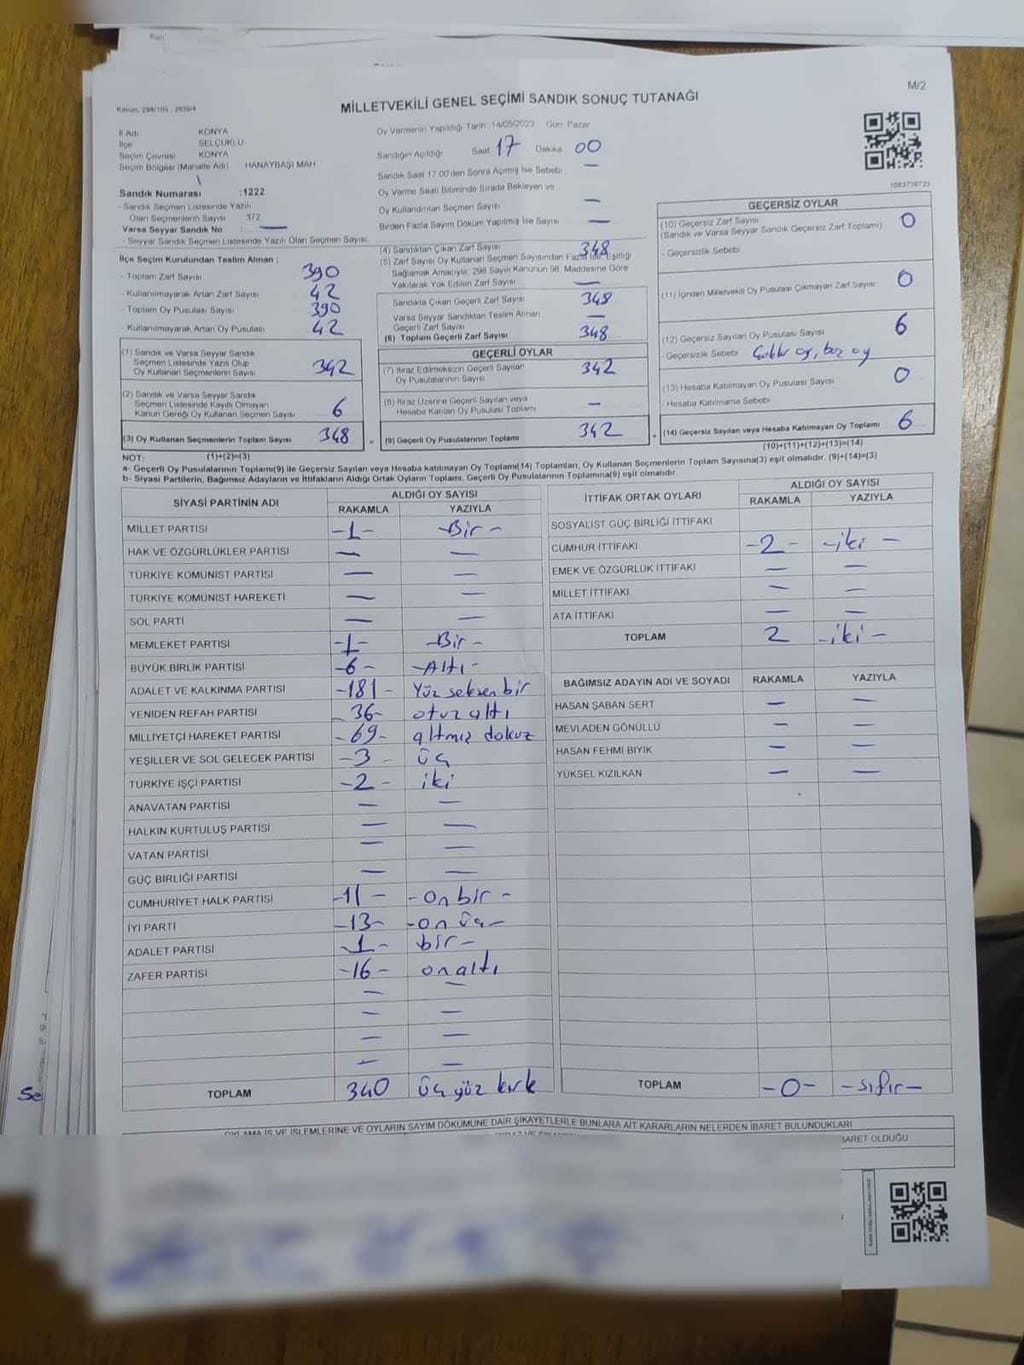 M/2
MİLLETVEKİLİ GENEL SEÇİMİ SANDIK SONUÇ TUTANAĞI
İl Adı KONYA
İlçe SELÇUKLU
Seçim Çevresi KONYA
Seçim Bölgesi (Mahalle Adı) HANAYBAŞI MAH.
Sandık Numarası :1222
- Sandık Seçmen Listesinde Yazılı
Olan Seçmenlerin Sayısı 372
Varsa Seyyar Sandık No : —
- Seyyar Sandık Seçmen Listesinde Yazılı Olan Seçmen Sayısı
İlçe Seçim Kurulundan Teslim Alınan ;
- Toplam Zarf Sayısı 390
- Kullanılmayarak Artan Zarf Sayısı 42
- Toplam Oy Pusulası 390
- Kullanılmayarak Artan Oy Pusulası 42
(1) Sandık ve Varsa Seyyar Sandık
Seçmen Listesinde Yazılı Olup
Oy Kullanan Seçmenlerin Sayısı 342
(2) Sandık ve Varsa Seyyar Sandık
Seçmen Listesinde Kayıtlı Olmayan
Kanun Gereği Oy Kullanan Seçmen Sayısı 6
(3) Oy Kullanan Seçmenlerin Toplam Sayısı 348
(1)+(2)=(3)
Oy Vermenin Yapıldığı Tarih :14/05/2023 Gün: Pazar
Sandığın Açıldığı Saat: 17 Dakika: 00
Sandık Saat 17:00'den Sonra Açılmış İse Sebebi —
Oy Verme Saati Bitiminde Sırada Bekleyen ve
Oy Kullandırılan Seçmen Sayısı —
Birden Fazla Sayım Döküm Yapılmış İse Sayısı —
(4) Sandıktan Çıkan Zarf Sayısı 348
(5) Zarf Sayısı Oy Kullanan Seçmen Sayısından Fazla İse, Eşitliği
Sağlamak Amacıyla, 298 Sayılı Kanunun 98. Maddesine Göre
Yakılarak Yok Edilen Zarf Sayısı —
Sandıkta Çıkan Geçerli Zarf Sayısı 348
Varsa Seyyar Sandıktan Teslim Alınan
Geçerli Zarf Sayısı —
(6) Toplam Geçerli Zarf Sayısı 348
GEÇERLİ OYLAR
(7) İtiraz Edilmeksizin Geçerli Sayılan
Oy Pusulalarının Sayısı 342
(8) İtiraz Üzerine Geçerli Sayılan veya
Hesaba Katılan Oy Pusulası Toplamı —
(9) Geçerli Oy Pusulalarının Toplamı 342
1083739723
GEÇERSİZ OYLAR
(10) Geçersiz Zarf Sayısı 0
(Sandık ve Varsa Seyyar Sandık Geçersiz Zarf Toplamı)
- Geçersizlik Sebebi:
(11) İçinden Milletvekili Oy Pusulası Çıkmayan Zarf Sayısı 0
(12) Geçersiz Sayılan Oy Pusulası Sayısı 6
- Geçersizlik Sebebi boş oy
(13) Hesaba Katılmayan Oy Pusulası Sayısı 0
- Hesaba Katılmama Sebebi
(14) Geçersiz Sayılan veya Hesaba Katılmayan Oy Toplamı 6
(10)+(11)+(12)+(13)=(14)
NOT:
a- Geçerli Oy Pusulalarının Toplamı(9) ile Geçersiz Sayılan veya Hesaba katılmayan Oy Toplamı(14) Toplamları, Oy Kullanan Seçmenlerin Toplam Sayısına(3) eşit olmalıdır. (9)+(14)=(3)
b- Siyasi Partilerin, Bağımsız Adayların ve İttifakların Aldığı Ortak Oyların Toplamı, Geçerli Oy Pusulalarının Toplamına(9) eşit olmalıdır.
SİYASİ PARTİNİN ADI ALDIĞI OY SAYISI
RAKAMLA YAZIYLA
MİLLET PARTİSİ -1- -Bir-
HAK VE ÖZGÜRLÜKLER PARTİSİ — —
TÜRKİYE KOMÜNİST PARTİSİ — —
TÜRKİYE KOMÜNİST HAREKETİ — —
SOL PARTİ — —
MEMLEKET PARTİSİ -1- -Bir-
BÜYÜK BİRLİK PARTİSİ -6- -Altı-
ADALET VE KALKINMA PARTİSİ -181- Yüz seksen bir
YENİDEN REFAH PARTİSİ -36- otuz altı
MİLLİYETÇİ HAREKET PARTİSİ -69- altmış dokuz
YEŞİLLER VE SOL GELECEK PARTİSİ -3- üç
TÜRKİYE İŞÇİ PARTİSİ -2- iki
ANAVATAN PARTİSİ — —
HALKIN KURTULUŞ PARTİSİ — —
VATAN PARTİSİ — —
GÜÇ BİRLİĞİ PARTİSİ — —
CUMHURİYET HALK PARTİSİ -11- -on bir-
İYİ PARTİ -13- -on üç-
ADALET PARTİSİ -1- bir-
ZAFER PARTİSİ -16- on altı
TOPLAM 340 üç yüz kırk
İTTİFAK ORTAK OYLARI ALDIĞI OY SAYISI
RAKAMLA YAZIYLA
SOSYALİST GÜÇ BİRLİĞİ İTTİFAKI
CUMHUR İTTİFAKI -2- -iki-
EMEK VE ÖZGÜRLÜK İTTİFAKI — —
MİLLET İTTİFAKI — —
ATA İTTİFAKI — —
TOPLAM 2 -iki-
BAĞIMSIZ ADAYIN ADI VE SOYADI RAKAMLA YAZIYLA
HASAN ŞABAN SERT — —
MEVLADEN GÖNÜLLÜ — —
HASAN FEHMİ BIYIK — —
YÜKSEL KIZILKAN — —
TOPLAM -0- -sıfır-
OYLAMA İŞ VE İŞLEMLERİNE VE OYLARIN SAYIM DÖKÜMÜNE DAİR ŞİKAYETLERLE BUNLARA AİT KARARLARIN NELERDEN İBARET BULUNDUKLARI
İBARET OLDUĞU
Se